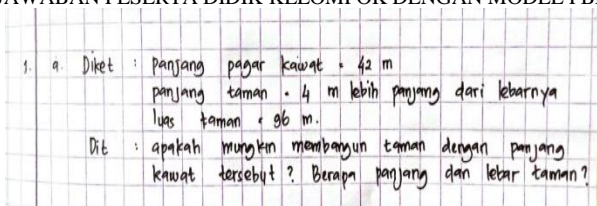 JAWABAN PESERTA DIDIK KELOMPOK DENGAN MODEL PBL
1. a. Diket : panjang pagar kawat = 42 m
panjang taman = 4 m lebih panjang dari lebarnya
luas taman = 96 m.
Dit : apakah mungkin membangun taman dengan panjang
kawat tersebut ? Berapa panjang dan lebar taman ?